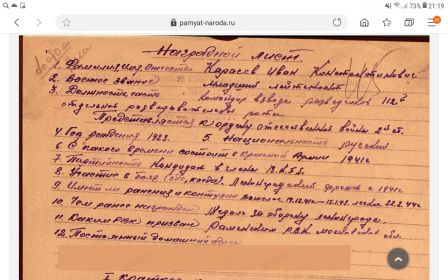 73% 21:19
pamyat-naroda.ru
Наградной лист.
1. Фамилия, имя, отчество Карасев Иван Константинович
2. Воинское звание младший лейтенант
3. Должность, часть командир взвода разведчиков 112й
отдельной разведывательной роты
Представляется к ордену отечественной войны 2й ст.
4. Год рождения 1923. 5. Национальность русский
6. С какого времени состоит в Красной Армии 1941г
7. Партийность Кандидат в члены ВКПБ.
8. Участие в боях (где, когда) Ленинградский фронт с 1941г
9. Имеет ли ранения и контузии
10. Чем ранее награжден Медаль За оборону Ленинграда.
11. Каким РВК призван Раменским Р.В.К. Московской обл.
12. Постоянный домашний адрес